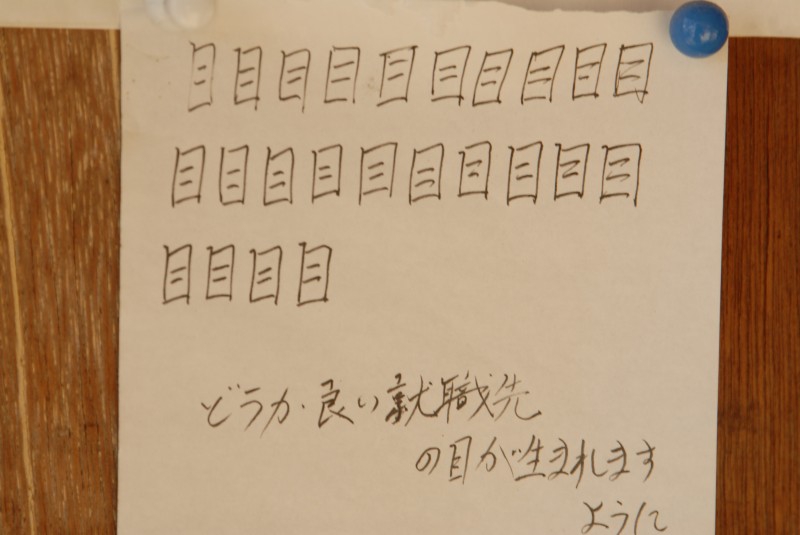 目目目目目目目目目目
目目目目目目目目目目
目目目目
どうか良い就職先
の目が生まれます
ように